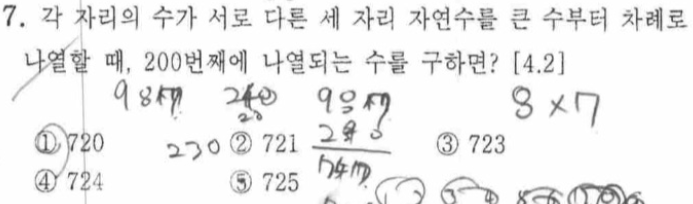 7. 각 자리의 수가 서로 다른 세 자리 자연수를 큰 수부터 차례로
나열할 때, 200번째에 나열되는 수를 구하면? [4.2]
987 240 987 8×7
20
① 720 230 ② 721 240 ③ 723
747
④ 724 ⑤ 725